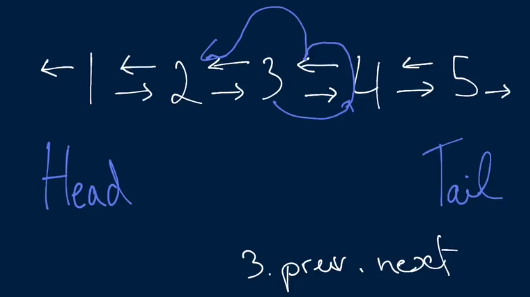 ← 1 ←→ 2 ←→ 3 ←→ 4 ←→ 5 →
Head Tail
3.prev.next